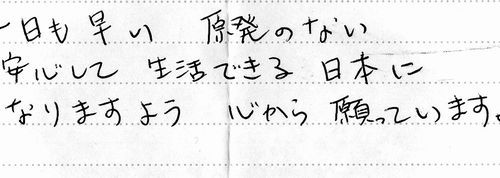 一日も早い 原発のない
安心して 生活できる 日本に
なりますよう 心から 願っています。